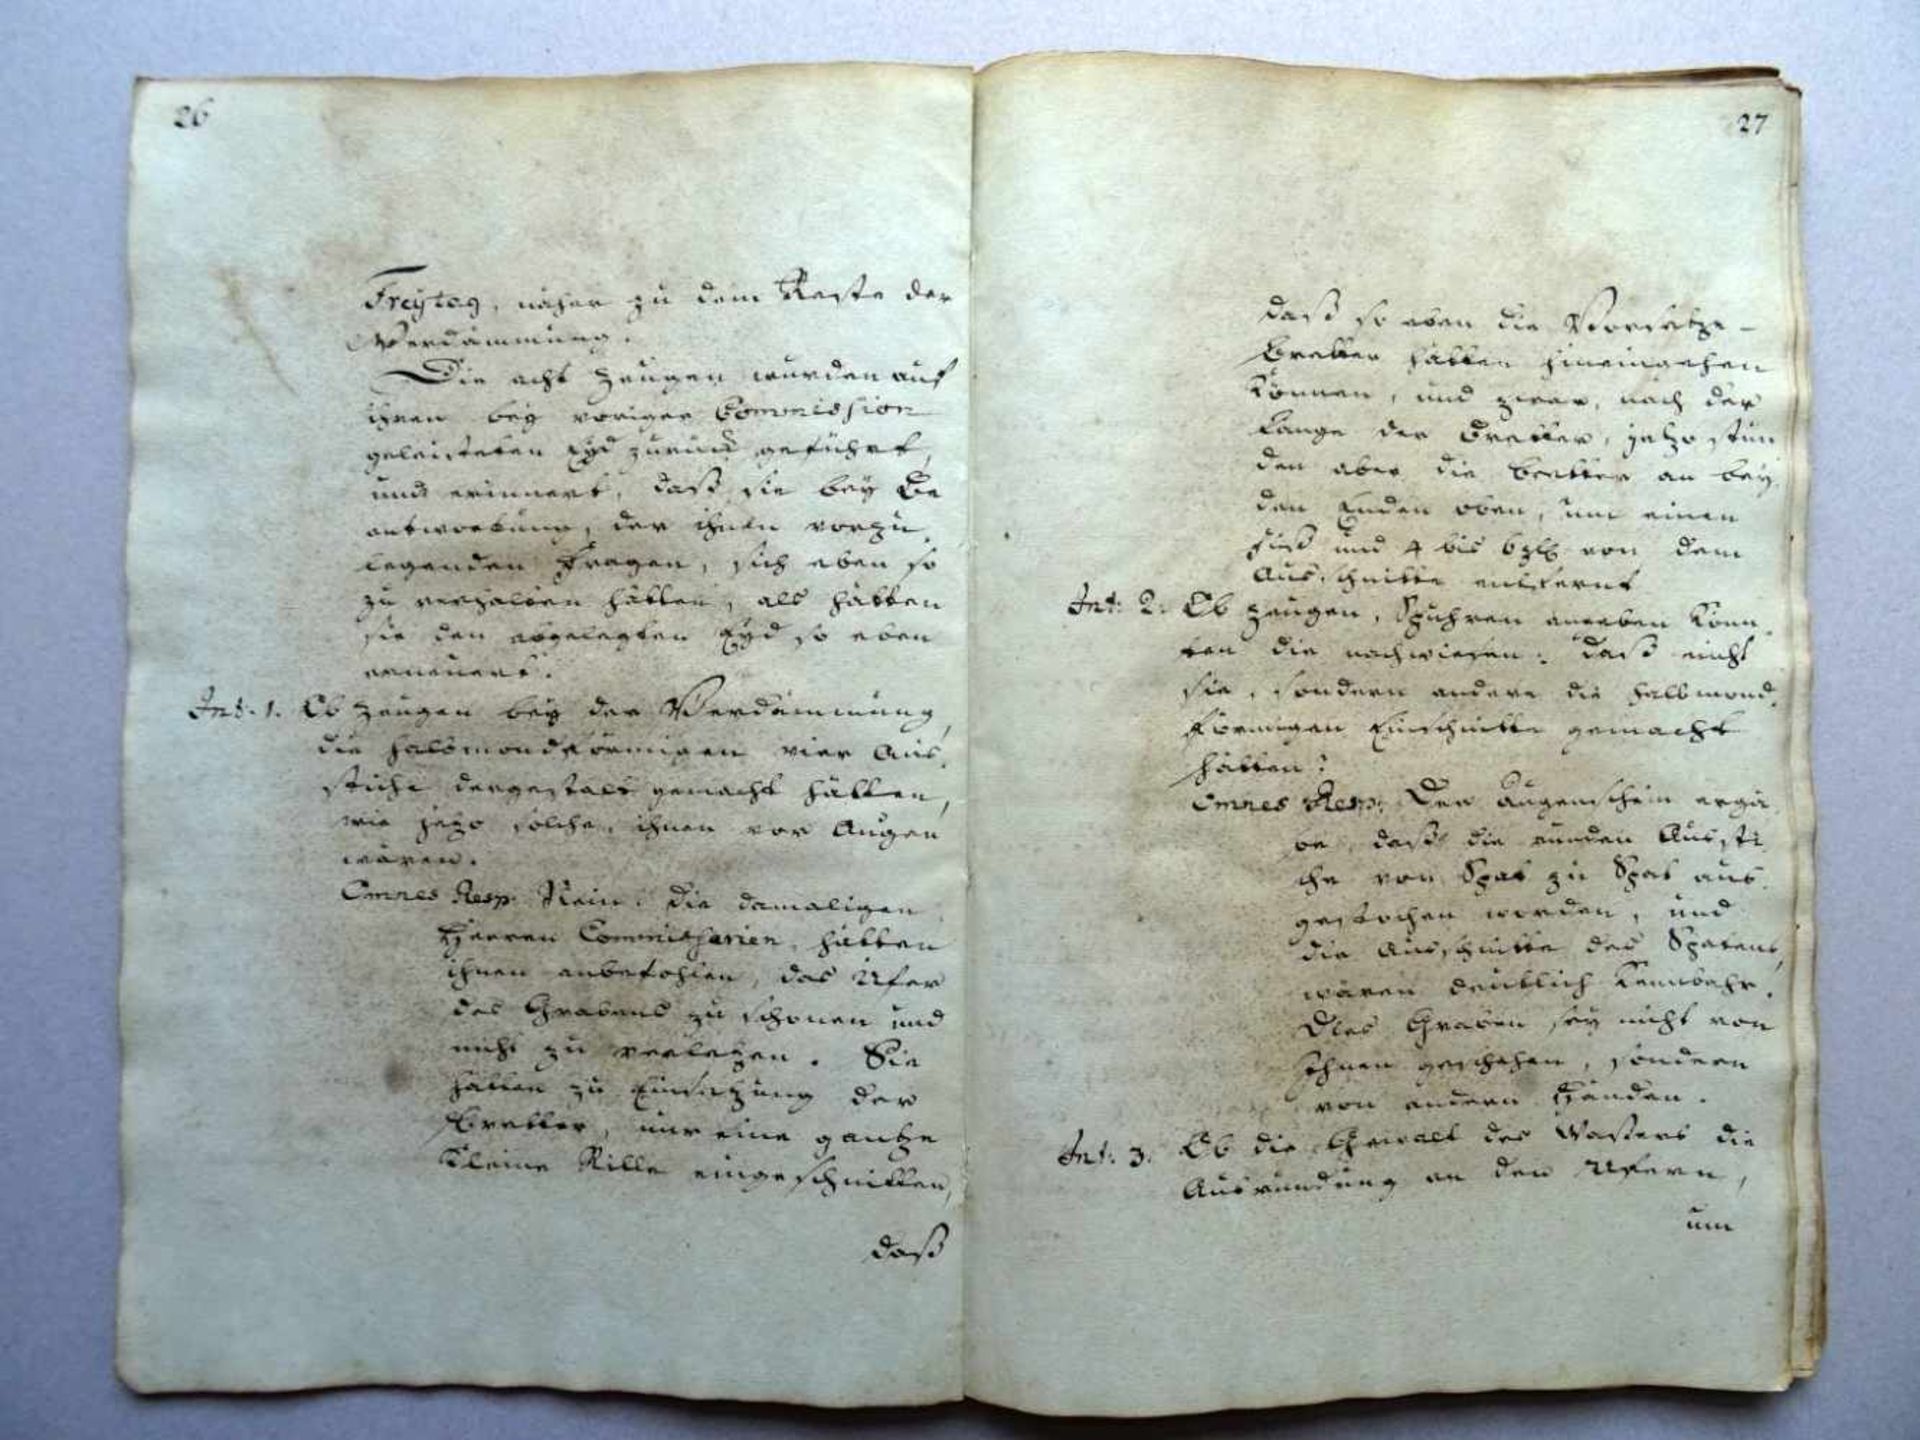 26
Freytag, näher zu dem Reste der
Verdämmung.
Die acht Zeugen wurden auf
ihren bey voriger Commission
geleisteten Eyd zurück geführt,
und erinnert, daß sie bey Be
antwortung, der ihnen vorzu
legenden Fragen, sich eben so
zu verhalten hätten, als hätten
sie den abgelegten Eyd so eben
erneuert.
Int. 1. Ob Zeugen bey der Verdämmung,
die halbmondförmigen vier Aus
stiche dergestalt gemacht hätten,
wie jezo solche, ihnen vor Augen
wären.
Omnes Resp. Nein. die damaligen
Herren Commissarien, hätten
ihnen anbefohlen, das Ufer
des Grabens zu schonen und
nicht zu verletzen. Sie
hätten zu Einsetzung der
Bretter, nur eine gantze
kleine Rille eingeschnitten,
daß
27
daß so eben die Vorsetze-
Bretter hätten hineingehen
können, und zwar, nach der
Länge der Bretter, jetzo stün
den aber die Bretter an bey
den Enden oben, um einen
Fuß und 4 bis 6 zl. von dem
Ausschnitte entfernt
Int. 2. Ob Zeugen, Spuhren angeben könn
ten die nachwiesen: daß nicht
sie, sondern andere die halbmond
förmigen Einschnitte gemacht
hätten?
Omnes Resp: Der Augenschein ergä
be, daß die runden Aussti
che von Spat zu Spat aus
gestochen worden, und
die Ausschnitte des Spatens,
wären deutlich kennbahr.
Dies Graben sey nicht von
Ihnen geschehen, sondern
von andern Händen.
Int. 3. Ob die Gewalt des Wassers die
Ausrundung an den Ufern,
um